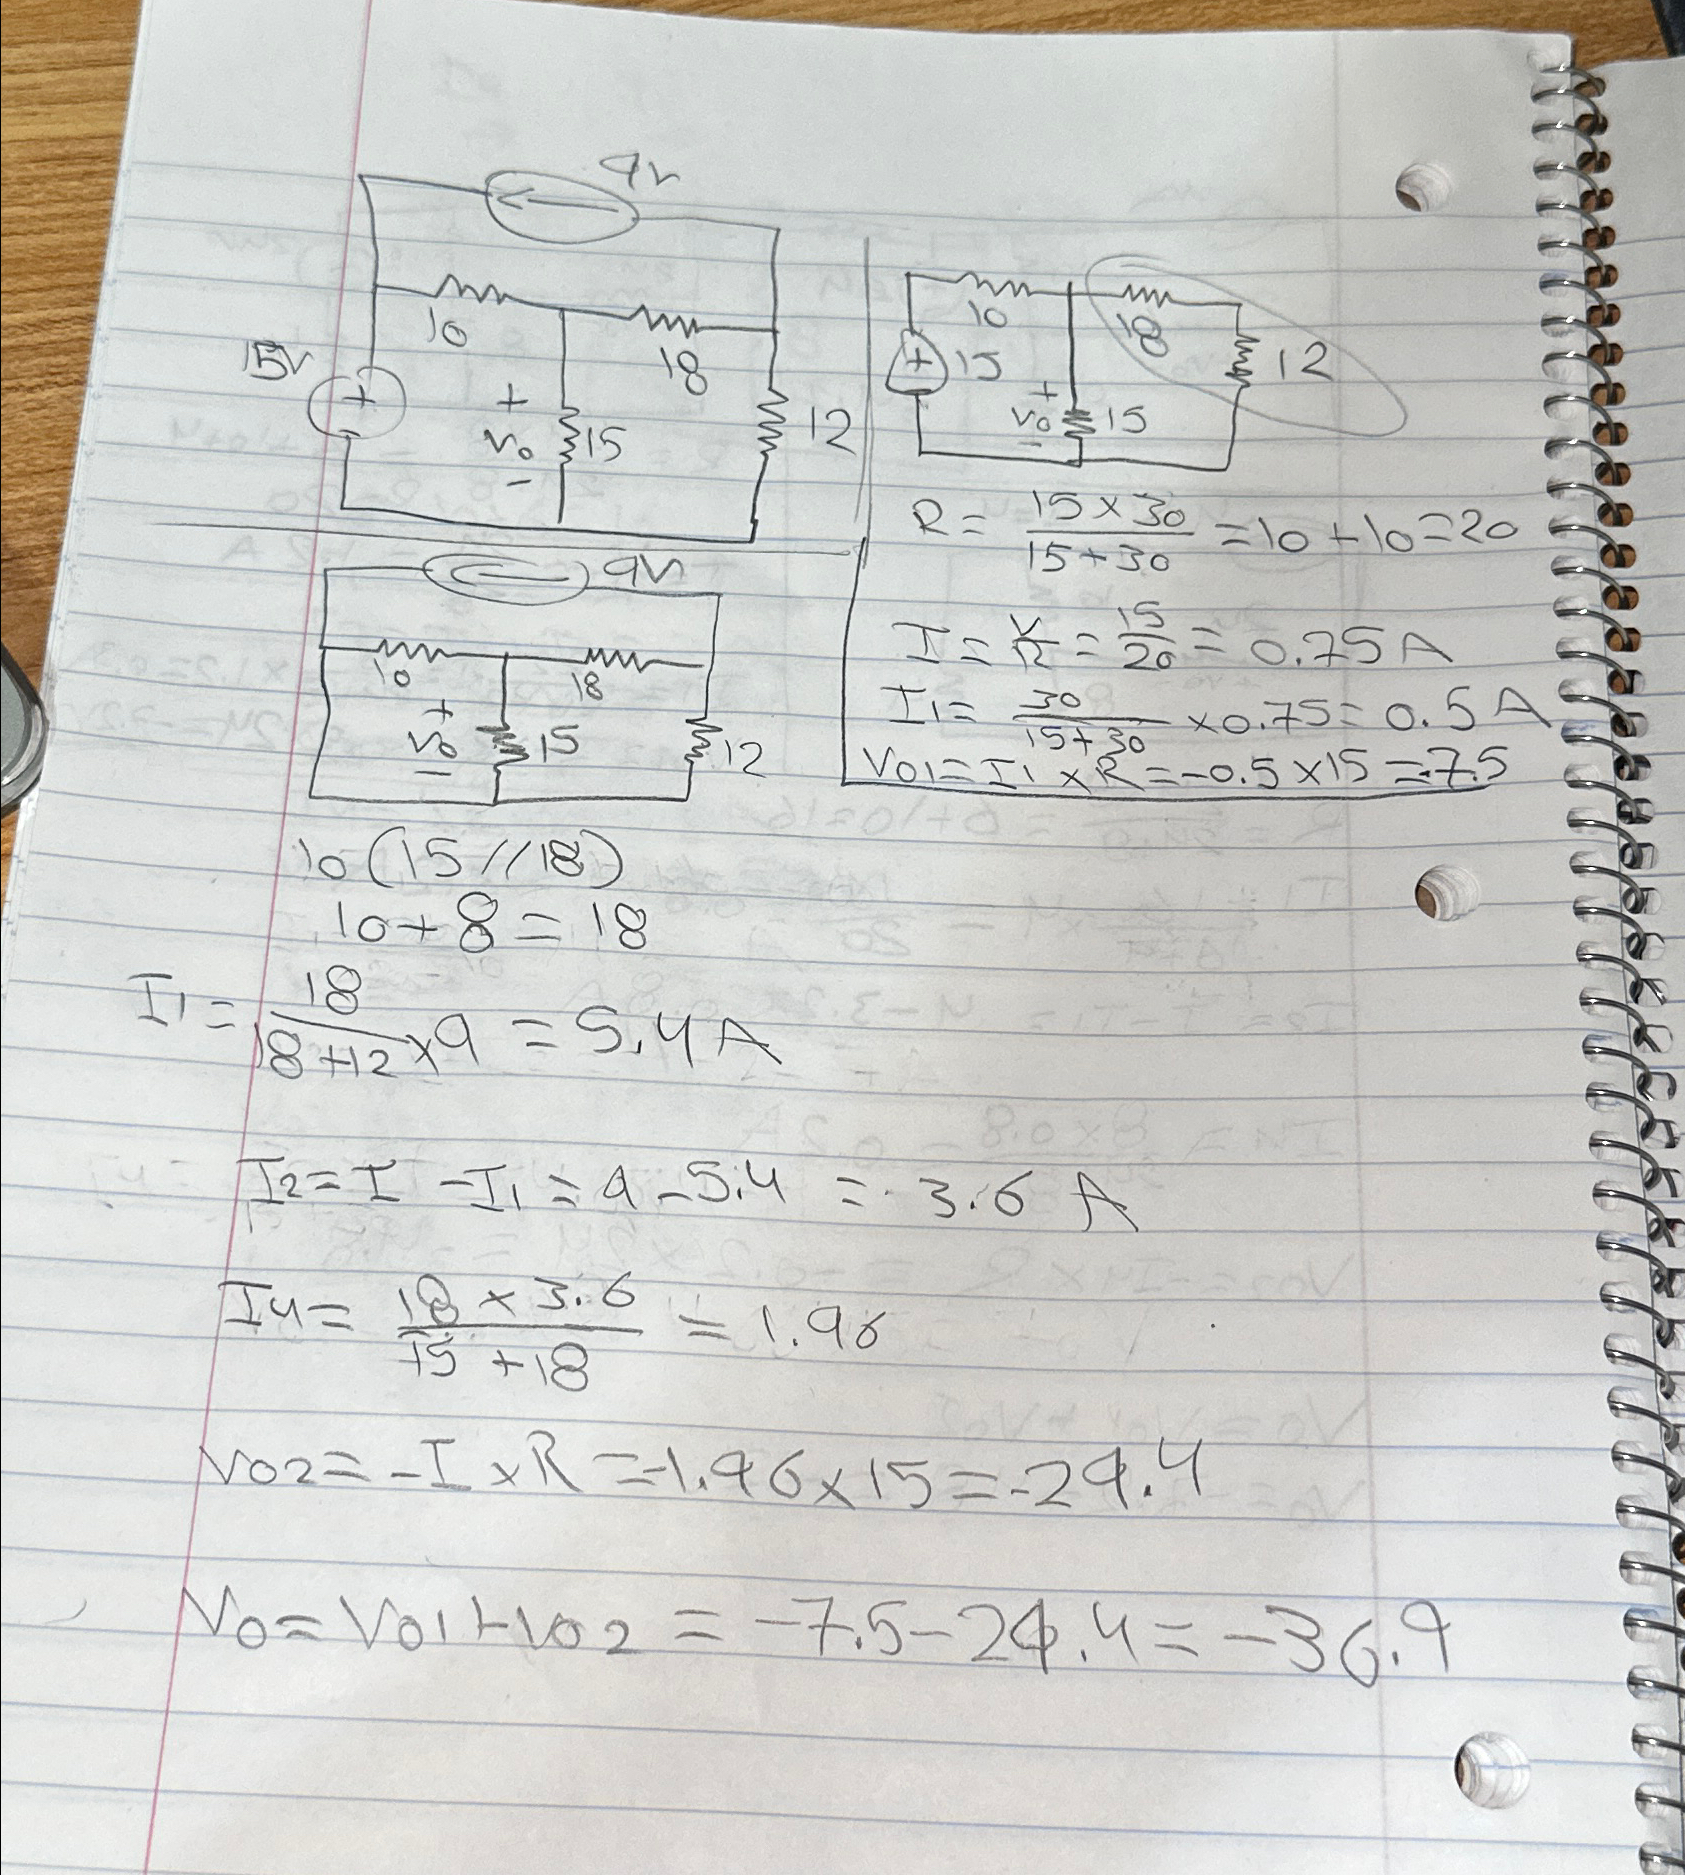 9v
10
18
15v
+
Vo
-
15
12
10
18
+ 15
12
+
Vo
-
15
R = 15 × 30 / 15 + 30 = 10 + 10 = 20
I = V/R = 15/20 = 0.75 A
I1 = 30 / 15 + 30 × 0.75 = 0.5 A
Vo1 = I1 × R = -0.5 × 15 = -7.5
9v
10
18
+
Vo
-
15
12
10 (15 // 18)
10 + 8 = 18
I1 = 18 / 18 + 12 × 9 = 5.4 A
I2 = I - I1 = 9 - 5.4 = 3.6 A
I4 = 18 × 3.6 / 15 + 18 = 1.96
Vo2 = -I × R = -1.96 × 15 = -29.4
Vo = Vo1 + Vo2 = -7.5 - 29.4 = -36.9